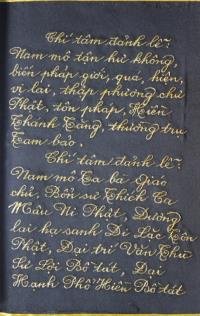 Chí tâm đảnh lễ:
Nam mô tận hư không,
biến pháp giới, quá, hiện,
vị lai, thập phương chư
Phật, tôn pháp, Hiền
Thánh Tăng, thường trụ
Tam bảo.
Chí tâm đảnh lễ:
Nam mô Ta bà Giáo
chủ, Bổn sư Thích Ca
Mâu Ni Phật, Đương
lai hạ sanh Di Lặc Tôn
Phật, Đại trí Văn Thù
Sư Lợi Bồ tát, Đại
Hạnh Phổ Hiền Bồ tát